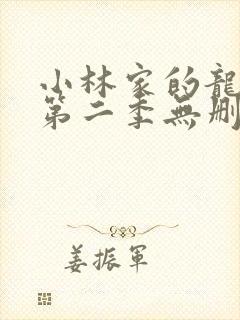 小林家的龍
第二季無刪
姜振軍